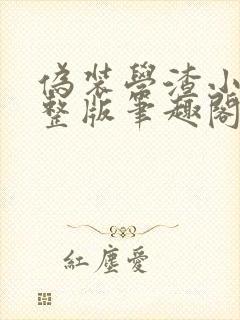 偽裝學渣小
整版筆趣閣
紅塵愛